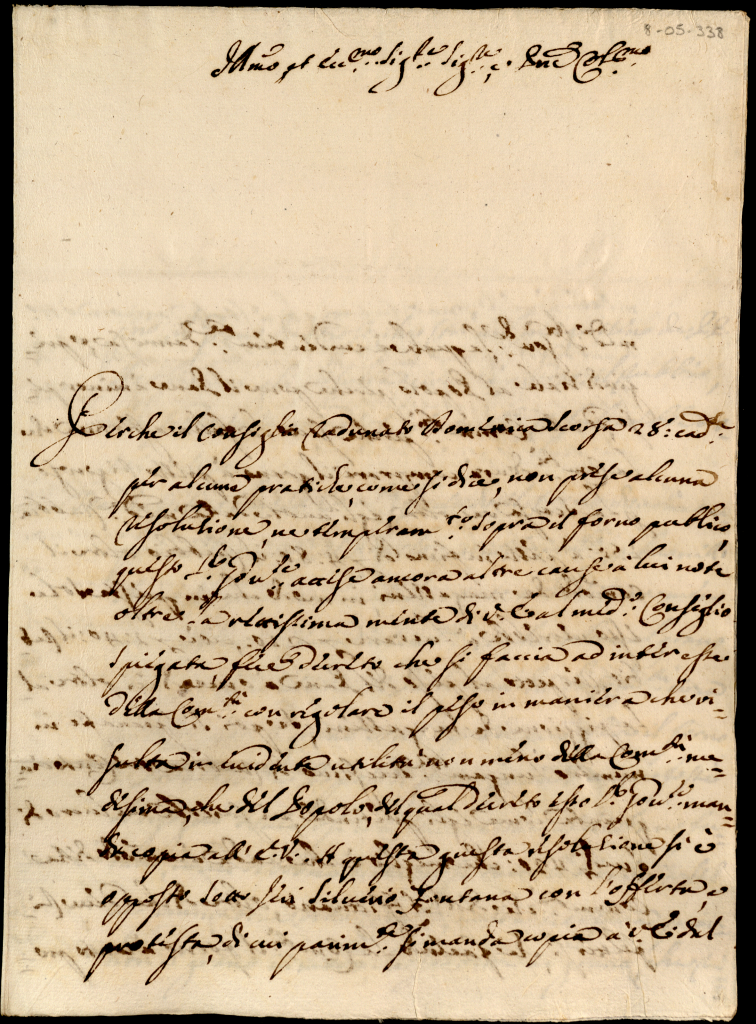 8-05-338
Ill.mo et Ecc.mo Sig.re Sig.re e Pne Col.mo
Perche il Consiglio radunato Domenica scorsa 28: cad.te
per alcune pratiche, come si dice, non prese alcuna
resolutione, ne temperam.to sopra il forno publico,
questo Gov.re, accise ancora altre cause à lui note
oltre la rettissima mente di V.E. al med.o Consiglio
spiegata fece decreto che si faccia ad interesse
della Com.tà con regolare il peso in maniera che ri=
sulta in evidente utilità non meno della Com.tà me=
desima, che del Popolo, del qual decreto esso Gov.re man=
da copia all' E.V. A questa resolutione si è
opposto Silverio Fontana con l'offerta, e
protesta, di cui parim.te si manda copia à V.E. del